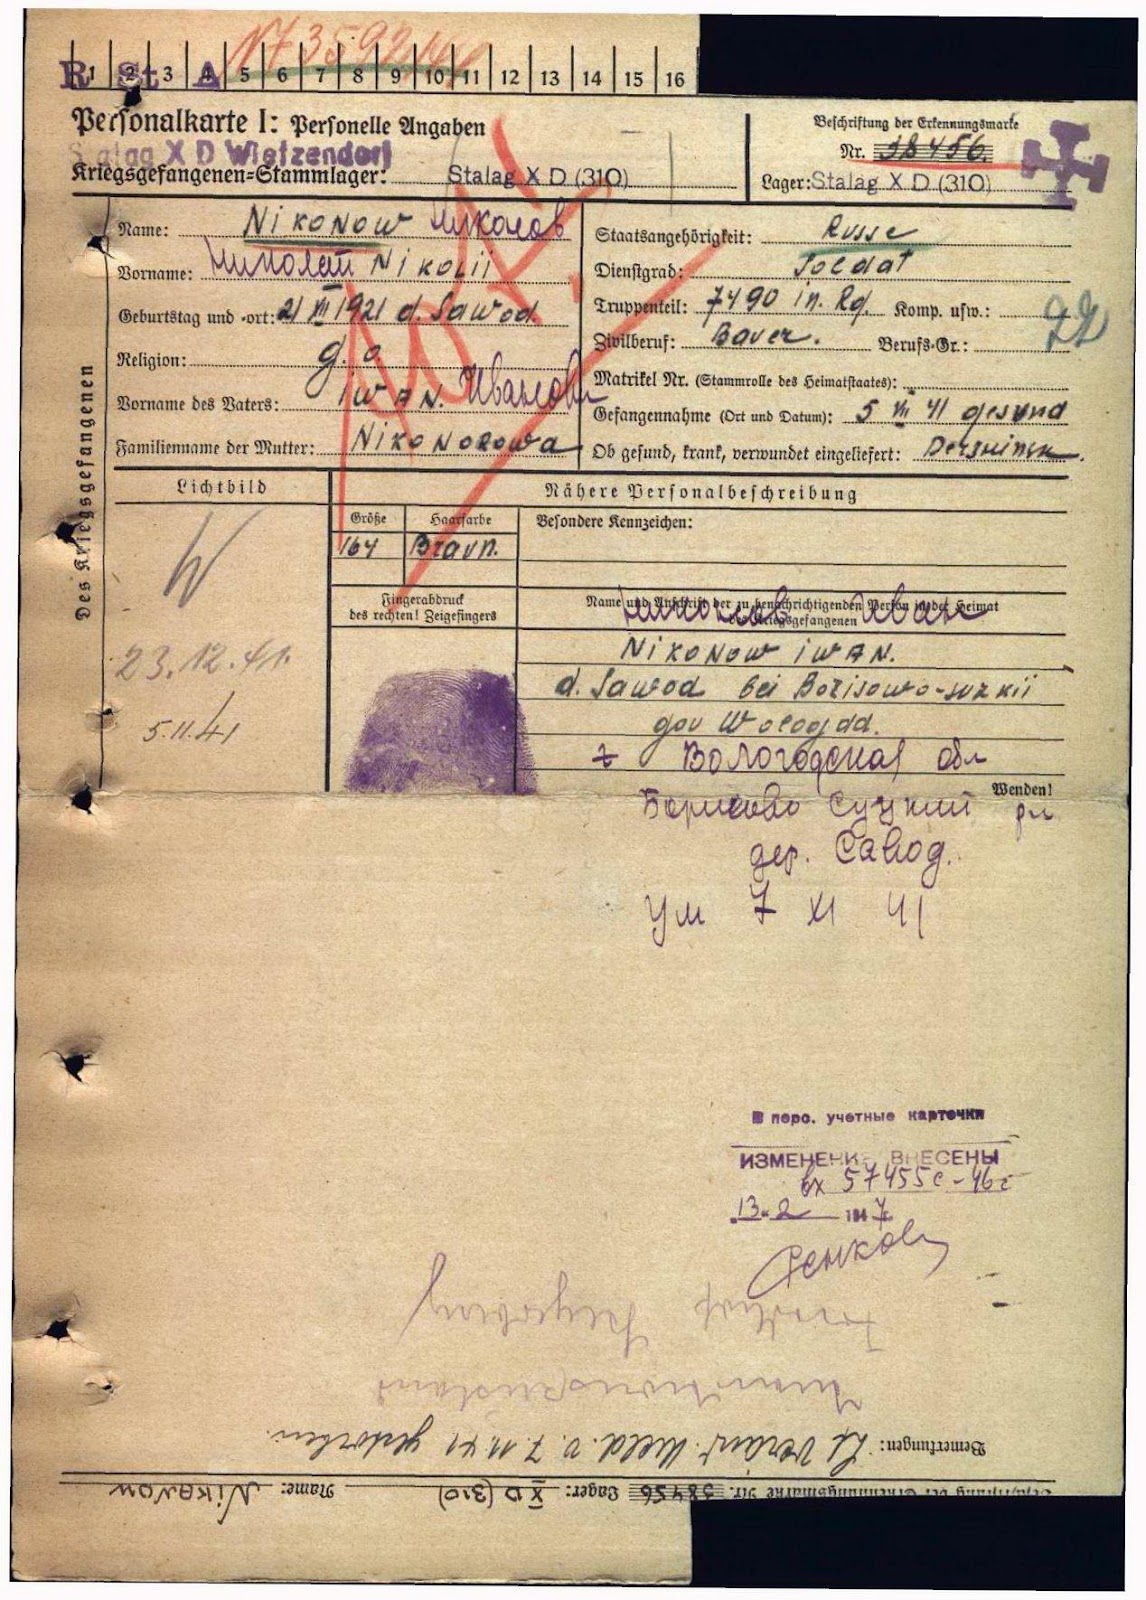 N73592
R St A
1 2 3 4 5 6 7 8 9 10 11 12 13 14 15 16
Personalkarte I: Personelle Angaben
Stalag X D Wietzendorf
Kriegsgefangenen=Stammlager: Stalag X D (310)
Beschriftung der Erkennungsmarke
Nr. 38456.
Lager: Stalag X D (310)
Des Kriegsgefangenen
Name: Nikonow
Vorname: Николай Nikolii
Geburtstag und -ort: 21 XII 1921 d. Sawod.
Religion: g. o.
Vorname des Vaters: iwan.
Familienname der Mutter: Nikonorowa
Staatsangehörigkeit: Russe
Dienstgrad: Soldat
Truppenteil: 7490 in. Rg. Komp. usw.:
Zivilberuf: Bauer. Berufs-Gr.:
Matrikel Nr. (Stammrolle des Heimatstaates):
Gefangennahme (Ort und Datum): 5 VII 41 gesund
Ob gesund, krank, verwundet eingeliefert:
Lichtbild
W
23.12.41.
5.11.41
Nähere Personalbeschreibung
Größe Haarfarbe Besondere Kennzeichen:
164 Braun.
Fingerabdruck
des rechten! Zeigefingers
Name und Anschrift der zu benachrichtigenden Person in der Heimat
des Kriegsgefangenen
Иван
Nikonow iwan.
d. Sawod bei Borisowo-suzkii
gov Wologdd.
Вологодская обл
Wenden!
Борисово Суцкий рн
дер. Савод.
Ум 7 XI 41
В перс. учетные карточки
ИЗМЕНЕНИ ВНЕСЕНЫ
вх 57455с-46г
13. 2 1947
Friedhof
Bemerkungen: Lt Veränd. Meld. v. 7.11.41 gestorben.
Beschriftung der Erkennungsmarke Nr. 38456 Lager: X D (310) Name: Nikonow